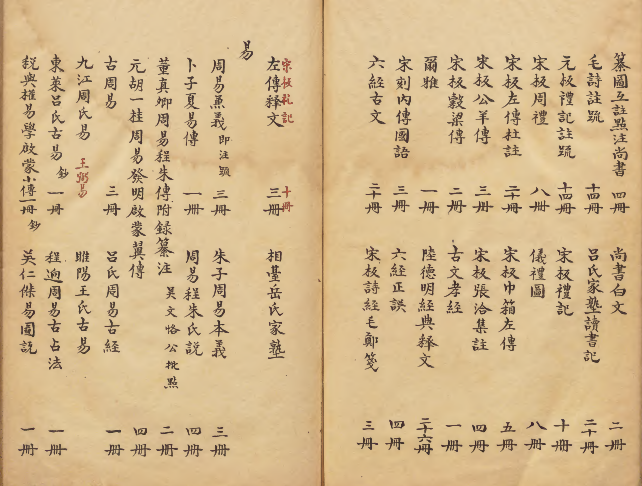 纂圖互註點注尚書 四冊 尚書白文 二冊
毛詩註疏 十四冊 呂氏家塾讀書記 二十冊
元板禮記註疏 十四冊 宋板禮記 十冊
宋板周禮 八冊 儀禮圖 八冊
宋板左傳杜註 二十冊 宋板巾箱左傳 五冊
宋板公羊傳 三冊 宋板張洽集註 四冊
宋板穀梁傳 二冊 古文孝經 一冊
爾雅 一冊 陸德明經典釋文 二十六冊
宋刻內傳國語 三冊 六經正誤 四冊
六經古文 二十冊 宋板詩經毛鄭箋 三冊
宋板禮記 十冊
左傳釋文 三冊 相臺岳氏家塾
易
周易兼義 即注疏 三冊 朱子周易本義 三冊
卜子夏易傳 一冊 周易程朱氏說 四冊
董真卿周易程朱傳附錄纂注 吳文恪公批點 二冊
元胡一桂周易發明啟蒙翼傳 四冊
古周易 三冊 呂氏周易古經 一冊
九江周氏易 王弼易 睢陽王氏古易
東萊呂氏古易 鈔 一冊 程迥周易古占法 一冊
稅與權易學啟蒙小傳一冊 鈔 吳仁傑易圖說 一冊